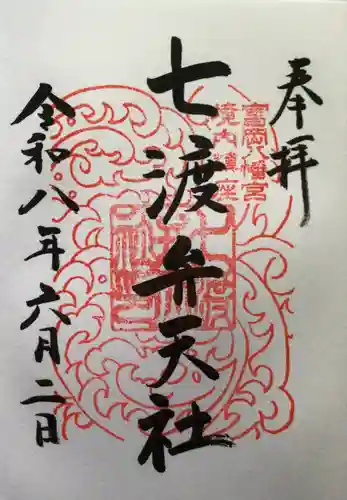 奉拝
富岡八幡宮
境内鎮座
七渡弁天社
令和八年六月二日